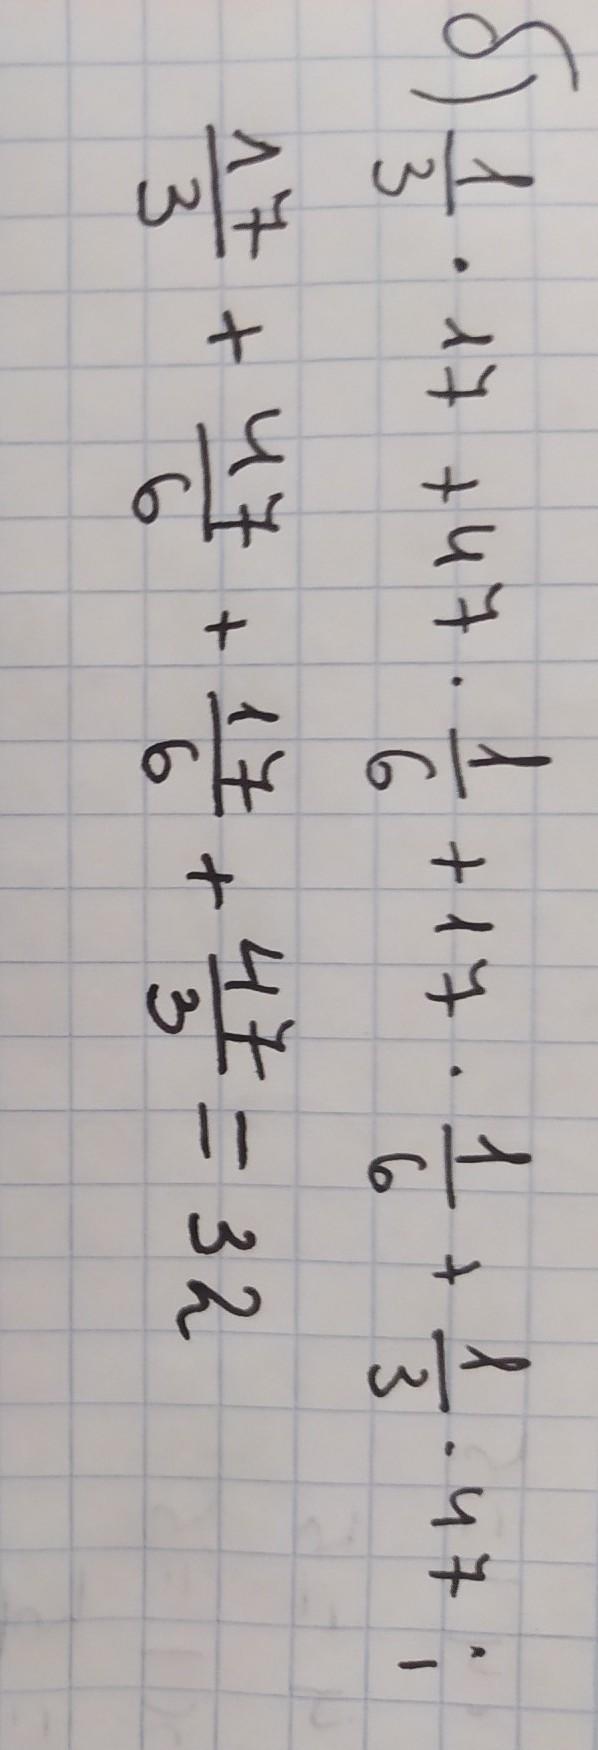 б) 1/3 · 17 + 47 · 1/6 + 17 · 1/6 + 1/3 · 47 ;
17/3 + 47/6 + 17/6 + 47/3 = 32